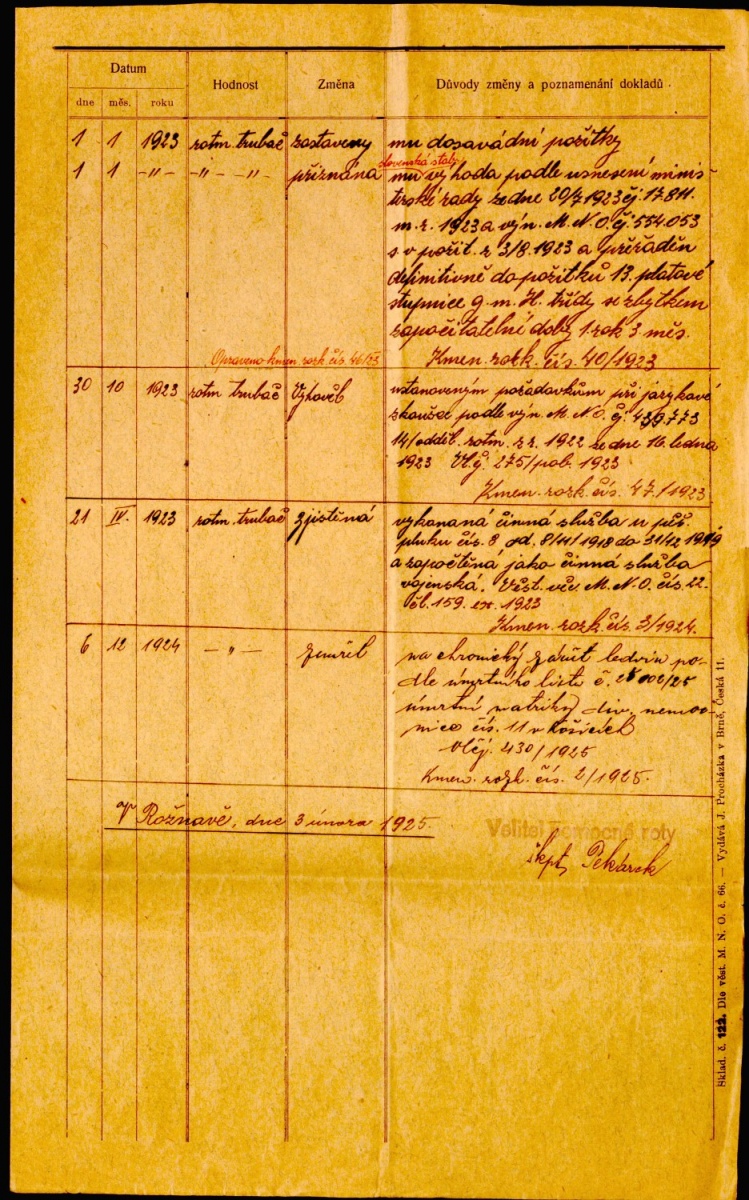 Datum
Hodnost
Změna
Důvody změny a poznamenání dokladů
dne měs. roku
1 1 1923 rotm. trubač zastaveny mu dosavádní požitky
slovenská stálá
1 1 -"- -"- -"- přiznána mu výhoda podle usnesení minis
terské rady ze dne 20/7 1923 čj. 17.811.
m. r. 1923 a výn. M. N. O. čj. 554.053
s v požit. z 3/8. 1923 a přeřaděn
definitivně do požitků 13. platové
stupnice g. m. H. třídy se zbytkem
započitatelní doby 1 rok 3 měs.
Opraveno kmen. rozk. čís. 46/23
Kmen. rozk. čís. 40/1923
30 10 1923 rotm. trubač Vyhověl ustanoveným požadavkům při jazykové
zkoušce podle výn. M. N. O. čj. 439.773
14/odděl. rotm. z r. 1922 ze dne 16. ledna
1923 Vl. čj. 275/pob. 1923
Kmen. rozk. čís. 47/1923.
21 IV. 1923 rotm. trubač zjistěná vykonaná činná služba u pěš.
pluku čís. 8 od 8/11/1918 do 31/12 1919
a započtěná jako činná služba
vojenská. Věst. věc. M. N. O. čís. 22.
čl. 159. ex. 1923
Kmen. rozk. čís. 3/1924.
6 12 1924 -"- zemřel na chronický zánět ledvin po-
dle úmrtního listu č.
úmrtní matriky div. nemoc-
nice čís. 11 v Košicích
Vl. čj. 430/1925
Kmen. rozk. čís. 2/1925.
V Rožnavě, dne 3 února 1925.
Velitel pomocné roty
škpt. Pekárek
Sklad. č. 122. Dle věst. M. N. O. č. 66. — Vydává J. Procházka v Brně, Česká 11.